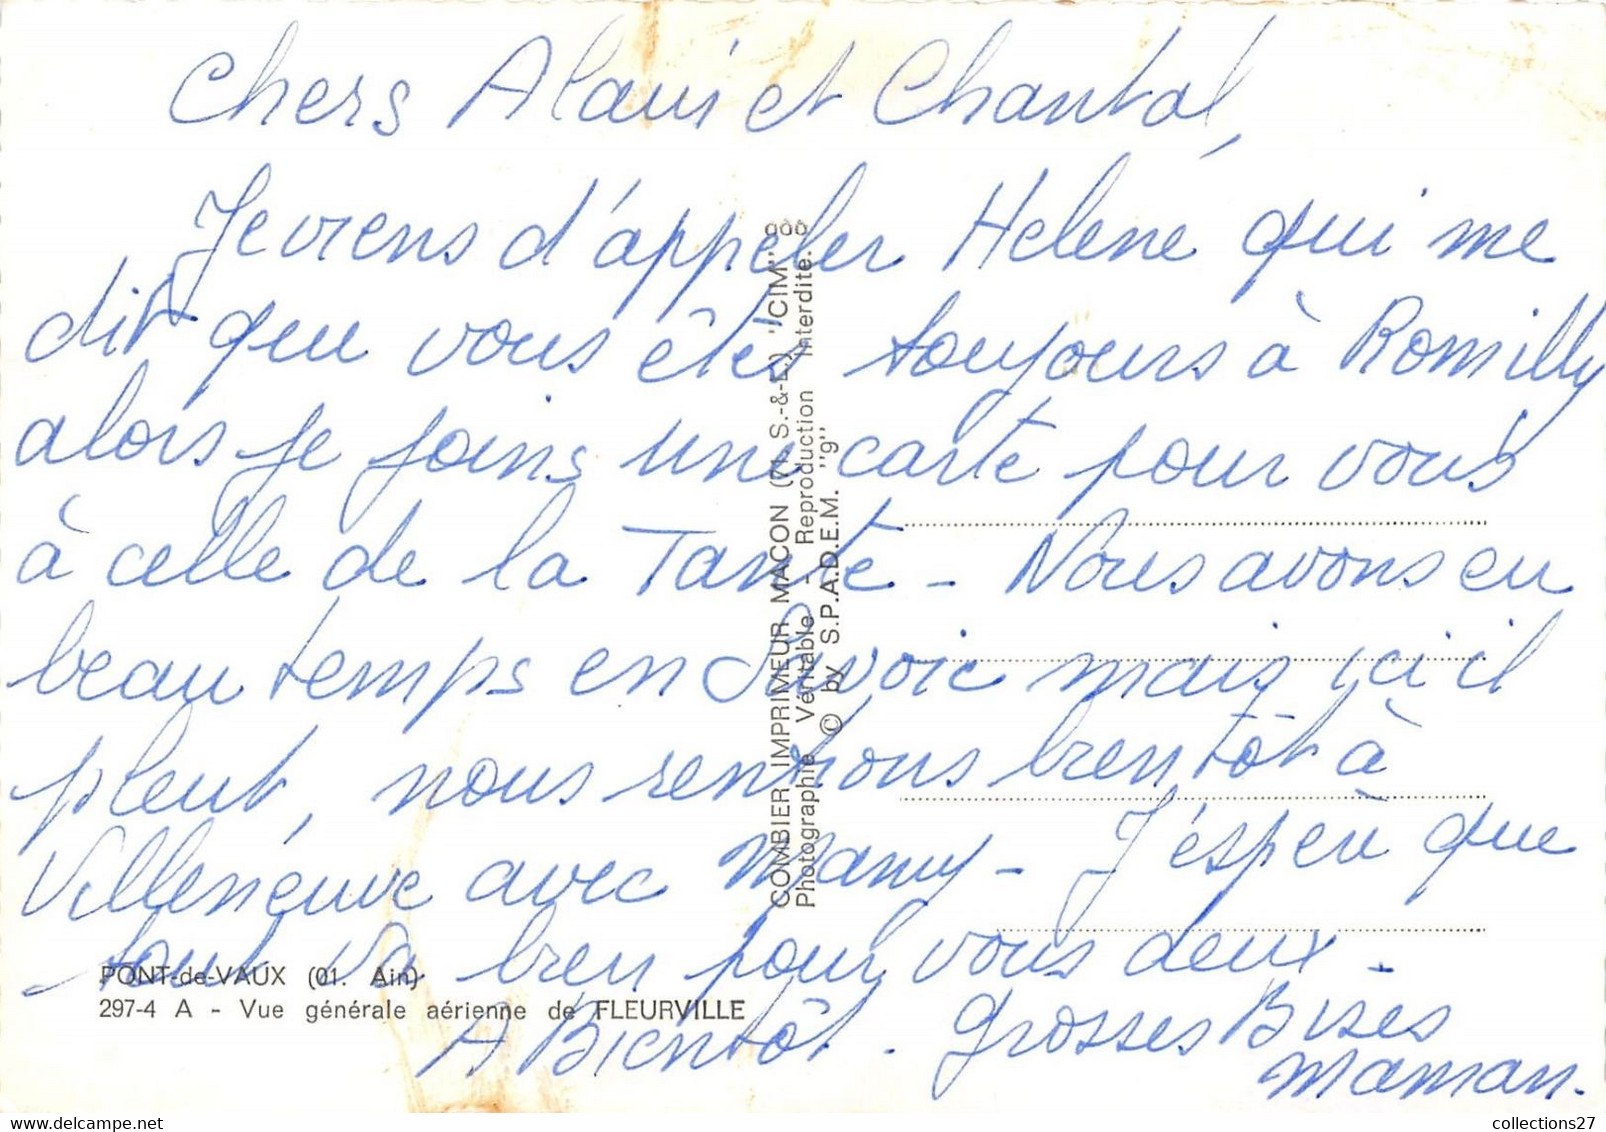 Chers Alain et Chantal,
Je viens d'appeler Hélène qui me
dit que vous êtes toujours à Romilly
alors je joins une carte pour vous
à celle de la Tante - Nous avons eu
beau temps en Savoie mais ici il
pleut, nous rentrons bientôt à
Villeneuve avec Mamy - J'espère que
tout va bien pour vous deux -
A Bientôt - Grosses Bises
Maman.
PONT-de-VAUX (01. Ain)
297-4 A - Vue générale aérienne de FLEURVILLE
COMBIER IMPRIMEUR MACON (71 S.-&-L.) "CIM"
Photographie Véritable - Reproduction Interdite.
© by S.P.A.D.E.M. "9"
collections27